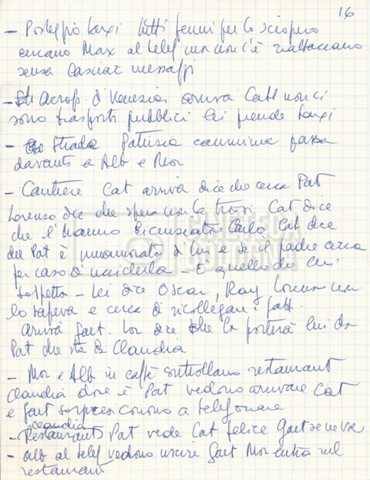 16
- Posteggio taxi tutti fermi per lo sciopero
cercano Max al telef ma non c'è riattaccano
senza lasciar messaggi
- Aerop. di Venezia arriva Cath non ci
sono trasporti pubblici lei prende taxi
- Strada Patrizia cammina passa
davanti a Alb e Mor
- Cantiere Cat arriva dice che cerca Pat
Lorenzo dice che spera non la trovi Cat dice
che l'hanno Carlo Cat dice
che Pat è innamorata di lui e se il padre cerca
per caso di ucciderla è quello di cui
sospetta - Lei dice Oscar, Ray Lorenzo non
lo sapeva e cerca di ricollegare i fatti.
arriva Gaet. Lor dice che la porterà lui da
Pat che sta da Claudia
- Mor e Alb in caffè controllano restaurant
Claudia dove è Pat vedono arrivare Cat
e Gaet sorpresi corrono a telefonare
Claudia
- Restaurant Pat vede Cat felice Gaet se ne va
- Alb al telef vedono uscire Gaet Mor entra nel
restaurant